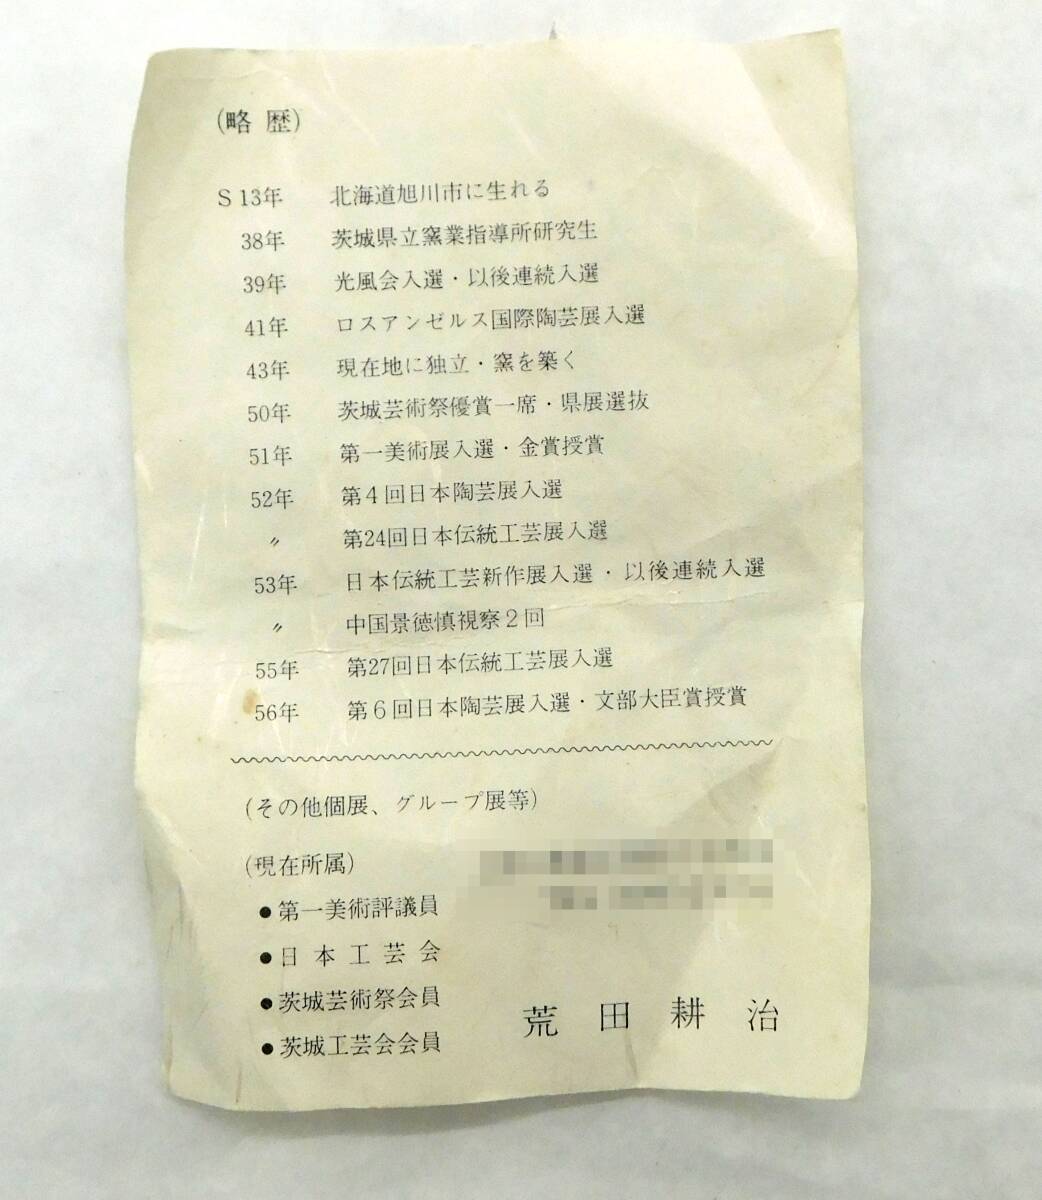 (略歴)
S13年 北海道旭川市に生れる
38年 茨城県立窯業指導所研究生
39年 光風会入選・以後連続入選
41年 ロスアンゼルス国際陶芸展入選
43年 現在地に独立・窯を築く
50年 茨城芸術祭優賞一席・県展選抜
51年 第一美術展入選・金賞授賞
52年 第4回日本陶芸展入選
〃 第24回日本伝統工芸展入選
53年 日本伝統工芸新作展入選・以後連続入選
〃 中国景徳慎視察2回
55年 第27回日本伝統工芸展入選
56年 第6回日本陶芸展入選・文部大臣賞授賞
(その他個展、グループ展等)
(現在所属)
●第一美術評議員
●日本工芸会
●茨城芸術祭会員
●茨城工芸会会員
荒田耕治